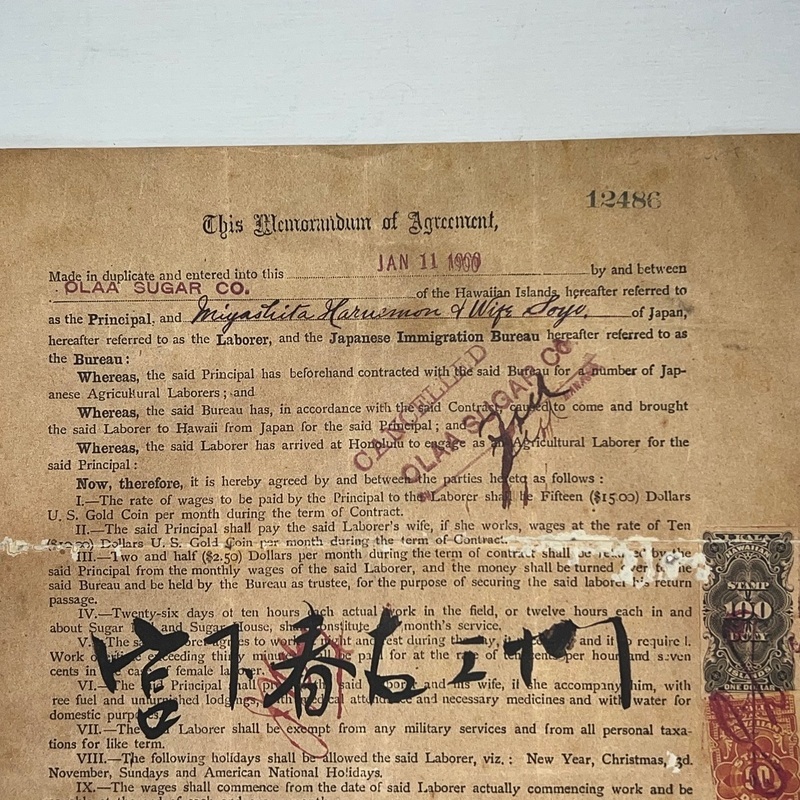 12486
This Memorandum of Agreement,
Made in duplicate and entered into this JAN 11 1900 by and between
OLAA SUGAR CO. of the Hawaiian Islands, hereafter referred to
as the Principal, and Miyashita Haruemon & Wife Soyo, of Japan,
hereafter referred to as the Laborer, and the Japanese Immigration Bureau hereafter referred to as
the Bureau:
Whereas, the said Principal has beforehand contracted with the said Bureau for a number of Jap-
anese Agricultural Laborers; and
Whereas, the said Bureau has, in accordance with the said Contract, caused to come and brought
the said Laborer to Hawaii from Japan for the said Principal; and
Whereas, the said Laborer has arrived at Honolulu to engage as an Agricultural Laborer for the
said Principal:
CANCELLED
OLAA SUGAR CO
Now, therefore, it is hereby agreed by and between the parties hereto as follows:
I.—The rate of wages to be paid by the Principal to the Laborer shall be Fifteen ($15.00) Dollars
U. S. Gold Coin per month during the term of Contract.
II.—The said Principal shall pay the said Laborer's wife, if she works, wages at the rate of Ten
Dollars U. S. Gold Coin per month during the term of Contract.
III.—Two and half ($2.50) Dollars per month during the term of contract shall be the
said Principal from the monthly wages of the said Laborer, and the money shall be turned over to the
said Bureau and be held by the Bureau as trustee, for the purpose of securing the said laborer his return
passage.
IV.—Twenty-six days of ten hours each actual work in the field, or twelve hours each in and
about Sugar Mill and Sugar House, shall constitute month's service.
V.—The said Laborer agrees to work night and rest during the day, if and if required.
Work overtime exceeding thirty minutes shall be paid for at the rate of ten cents per hour and seven
cents in the case of female laborer.
宮下春右エ門
VI.—The said Principal shall said Laborer and his wife, if she accompany him, with
free fuel and unfurnished lodgings, with medical attendance and necessary medicines and with water for
domestic purposes.
VII.—The Laborer shall be exempt from any military services and from all personal taxa-
tions for like term.
VIII.—The following holidays shall be allowed the said Laborer, viz.: New Year, Christmas, 3d.
November, Sundays and American National Holidays.
IX.—The wages shall commence from the date of said Laborer actually commencing work and be
HAWAIIAN
STAMP
100
DUTY
ONE DOLLAR